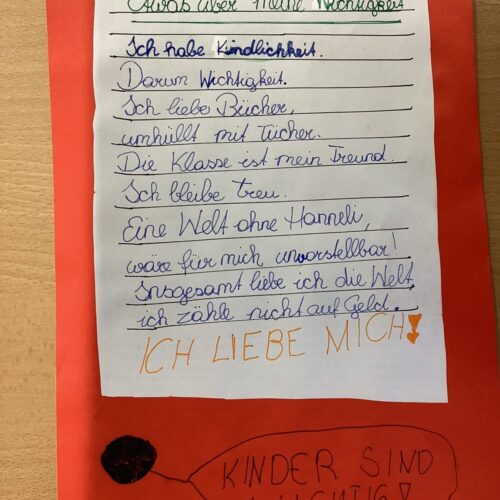 Etwas über meine Wichtigkeit
Ich habe Kindlichkeit.
Darum Wichtigkeit.
Ich liebe Bücher,
umhüllt mit Tücher.
Die Klasse ist mein Freund.
Ich bleibe treu.
Eine Welt ohne Hanneli,
wäre für mich unvorstellbar!
Insgesamt liebe ich die Welt,
ich zähle nicht auf Geld.
ICH LIEBE MICH!
KINDER SIND
WICHTIG!